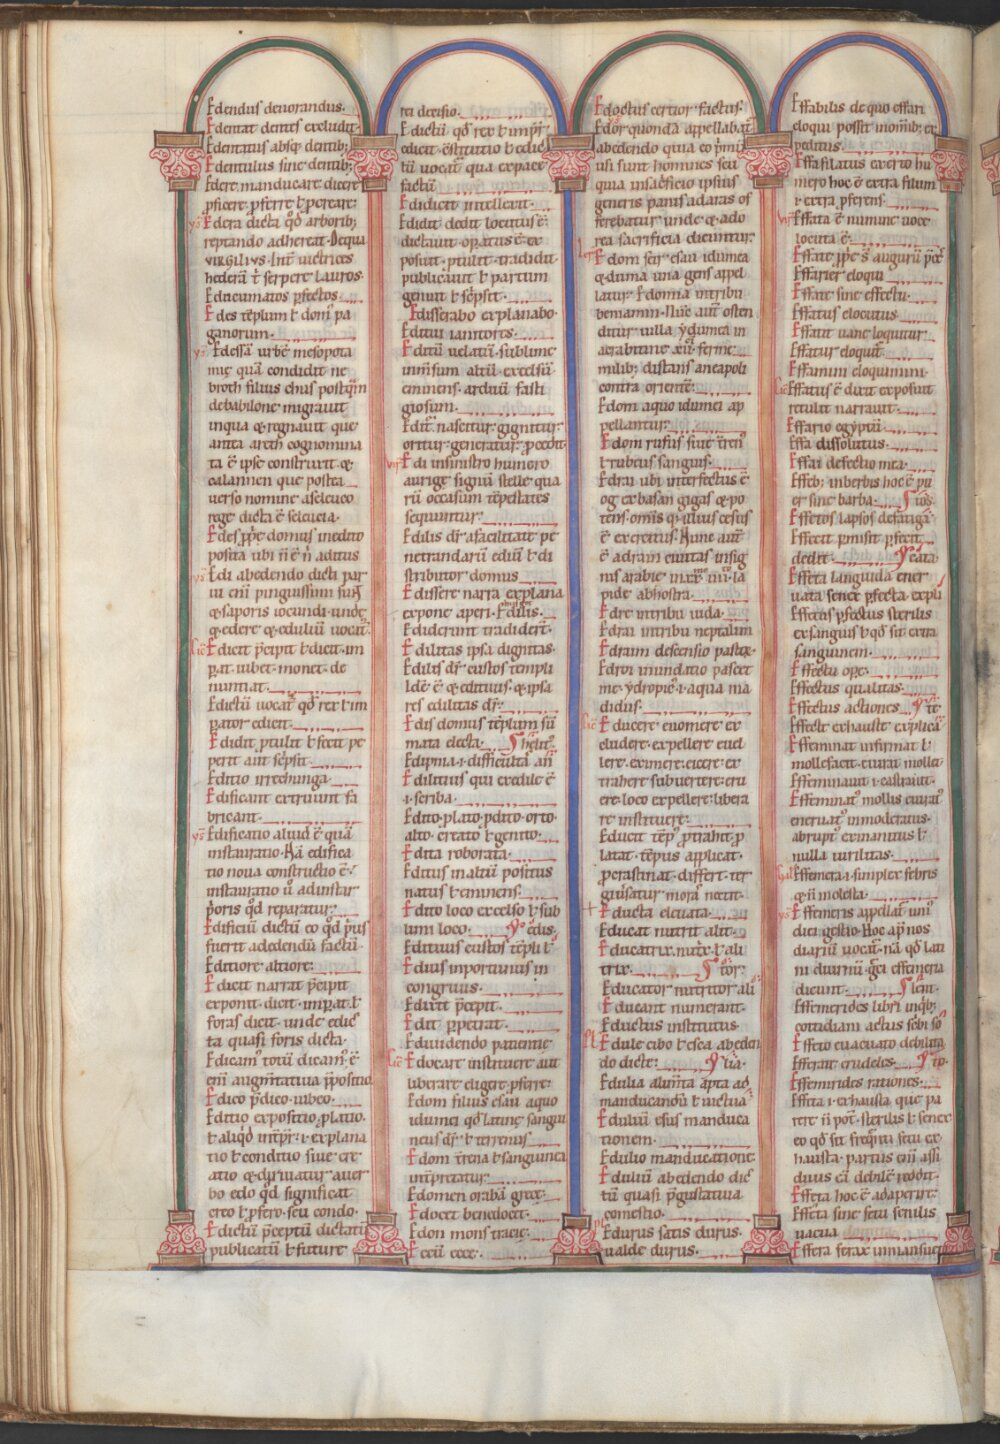 Edendus deuorandus.
Edentat dentes excludit.
Edentatus absq; dentib;
Edentulus sine dentib;
Edere. manducare dicere
ꝓficere. ꝓferre ł ꝑcreare.
Edera dicta qđ arborib;
reptando adhereat. De qua
VIRGILIVS. Inť uictrices
hederā ť serpere lauros.
Edneumatos ꝑfectos.
Edes tēplum ł domꝰ pa
ganorum.
Edessā urbē mesopota
mię quā condidit ne
broth filius chus postq̄m
de babilone migrauit
in qua ⁊ regnauit que
antea arech cognomina
ta ē ipse construxit ⁊
calannen que postea
uerso nomine a seleuco
rege dicta ē seleucia.
Edes ꝓprie domus in edito
posita ubi ñ ē ñ aditus
Edi ab edendo dicti par
ui enī pinguissimi sunt
⁊ saporis iocundi. unde
⁊ edere ⁊ eduliū uocat.
Edicit p̄cipit ł dicit. im
ꝑat. iubet. monet. de
nuntiat.
Edictū uocat qđ rex ł im
perator edicit.
Edidit. ꝓtulit ł fecit pe
perit aut sc̄psit.
Editio irrechunga.
Edificant extruunt fa
bricant.
Edificatio aliud ē quā
instauratio. Nā edifica
tio noua constructio ē.
instauratio ū ad instar
p̄oris qđ reparatur.
Edificiū dictū eo qđ p̄us
fuerit ad edendū factū.
Editiore altiore.
Edicit narrat p̄cipit
exponit. dicit. imꝑat. ł
foras dicit. unde edic
ta quasi foris dicta.
Edicamꝰ totū dicamꝰ. ē
enī augmtatiua p̄positio
Edico p̄dico. iubeo.
Editio expositio. ꝓlatio.
ł aliqđ inťpr. i. explana
tio ł conditio siue cre
atio ⁊ diriuatur a uer
bo edo qđ significat
creo ł ꝓfero. seu condo.
Edictū p̄ceptū dictatū
publicatū ł future
rei decisio.
Edictū. qđ rex ł impr
edicit. ēstitutio ł edic
tū uocat quā ex pace
factū
Edidicit intellexit.
Edidit dedit locutus ē.
dictauit. oꝑatus ē. ex
posuit. ꝓtulit. tradidit.
publicauit ł partum
genuit ł sc̄psit.
Edisserabo explanabo.
Editui ianitores.
Editū uelatū. sublime
inmsum altū. excelsū.
eminens. arduū fasti
giosum.
Edit. nascitur. gignitur.
oritur. generatur. ꝓcedit.
Edi in sinistro humero
aurige signū stelle qua
rū occasum tēpestates
sequuntur.
Edilis dr̄. a facilitate pe
netrandarū ediū ł di
stributor domus
Edissere narra explana
expone aperi. Edilis.
Ediderunt tradidert.
Edilitas ipsa dignitas.
Ediles dr̄ custos templi
Idē ē ⁊ edituus. ⁊ ipsa
res edilitas dr̄.
Edis domus tēplum sū
mata electa.
Edipma. i. difficultā an
Edilitius qui credile ē
.i. scriba.
Edito. plato. ꝓdito. orto
alto. creato ł genito.
Edita roborata.
Editus in altū positus
natus ł eminens.
Edito loco excelso ł sub
limi loco.
Edituus custos tēpli ł
Edius inportunus in
congruus.
Edixit p̄cepit.
Edit ꝑꝑerat.
Ediuidendo patiente
Edocare instituere aut
liberare eligere. ꝓferre.
Edom filius esau a quo
idumei qđ latine sangui
neus dr̄ ł terrenus.
Edom t̄rena ł sanguinea
intp̄tatur.
Edomen oraba grece.
Edocet benedocet.
Edon mons tracie.
Eccū ecce.
Edoctus certior factus.
Edor quondā appellabat
ab edendo quia eo p̄mū
usi sunt homines seu
quia in sac̄ficio ipsius
generis panis ad aras of
ferebatur unde ⁊ ado
rea sacrificia dicuntur
Edom seyr esau idumea
⁊ duma una gens appel
latur. Edomia in tribu
beniamin. Nunc aut osten
ditur uilla ydumea in
acrabitine. xii. ferme
milib; distans a neapoli
contra orientē.
Edom a quo idumei ap
pellantur.
Edom rufus siue t̄renꝰ
ł rubeus sanguis.
Edrai ubi interfectus ē
og rex basan gigas ⁊ po
tens. omīs ⁊ illius cesus
ē exercitus. Nunc aut
ē adram ciuitas insig
nis arabie in xxiiii. la
pide ab bostra.
Edre in tribu iuda.
Edrai in tribu neptalim
Edrain descensio pastꝰ.
Edroi inundatio pascet
me. ydropicꝰ. i. aqua ma
didus.
Educere euomere ex
cludere. expellere euel
lere. eximere. eicere. ex
trahere subuertere. eru
ere. loco expellere. libera
re instituere.
Educit tēpꝰ ꝓtrahit. ꝓ
latat. tēpus applicat.
ꝓcrastinat. differt. ter
giūsatur morā nectit.
Educta eleuata.
Educat nutrit alit.
Educatrix. nutx̄. ł ali
trix.
Educator nutritor ali
Educant numerant.
Eductus institutus.
Edule cibo ł esca ab eden
do dicte.
Edulia alimta apta ad
manducandū ł uictua
Eduliū esus manduca
tionem.
Edulio manducatione.
Eduliū ab edendo dic
tū quasi p̄gustatiua
comestio.
Edurus satis durus.
ualde durus.
Effabilis de quo effari.
eloqui possit inomīb; ex
peditus.
Effafilatus exerto hu
mero hoc ē extra filum
.i. extra ꝓferens.
Effata ē numine uoce
locuta ē.
Effate ꝓprie st augurū p̄ces
Effarier eloqui
Effate sine effectu.
Effatus elocutus.
Effatit uane loquitur
Effatur eloquit.
Effamini eloquimini.
Effatus ē dixit exposuit
retulit narrauit.
Effario egyptū.
Effa dissolutus.
Effai defectio mea.
Effeb; inberbis hoc ē pu
er sine barba.
Effetos lapsos defatiga
Effecit. ꝓmisit ꝑfecit.
dedit.
Effeta languida ener
uata senex ꝑfecta. expli
Effetus ꝑfectus sterilis
exsanguis ł qđ sit extra
sanguinem.
Effectu ope.
Effectus qualitas.
Effectus actiones.
Effecte exhauste explica
Effeminat infirmat ł
mollefacit. euirat mollit.
Effeminauit .i. castrauit.
Effeminatꝰ mollis euiratꝰ
eneruatꝰ inmoderatus.
abruptꝰ exinanitus ł
nulla uirilitas.
Effemera. i. simplex febris
⁊ ñ molesta.
Effemeris appellat uniꝰ
diei gestio. Hoc apd nos
diariū uocat. nā qđ lati
ni diurnū. greci effemeria
dicunt.
Effemerides libri in qb;
cottidiani actus sc̄bi so
Effeto euacuato debilita
Efferate crudeles.
Effemirides rationes.
Effeta. i. exhausta que pa
rere ñ pot. sterilis ł senex
eo qđ sit freqnti fetu ex
hausta. partus enī assi
duus eū debilē reddit.
Effeta hoc ē adaperire.
Effeta sine fetu senilis
uacua
Effera ferax inmansuet